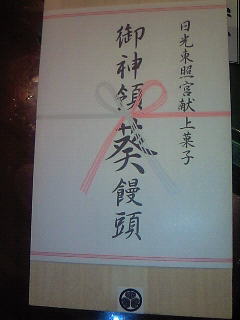 日光東照宮献上菓子
御神領葵饅頭